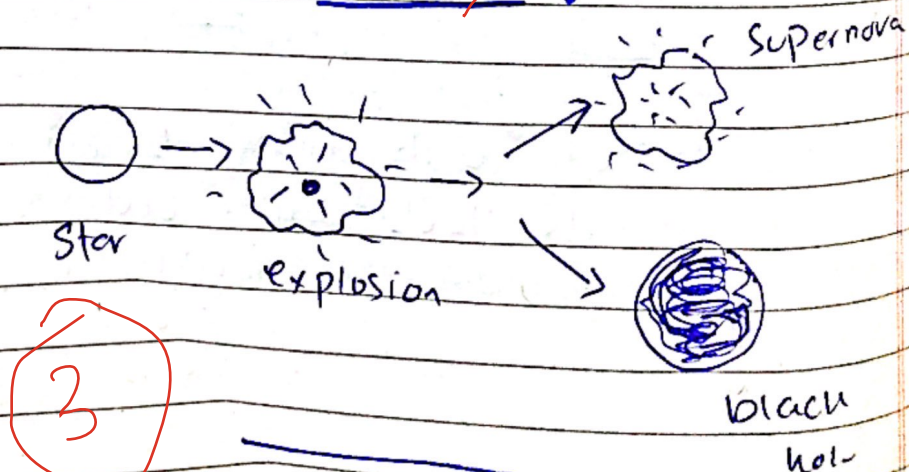 Supernova
Star
explosion
3
black
hol